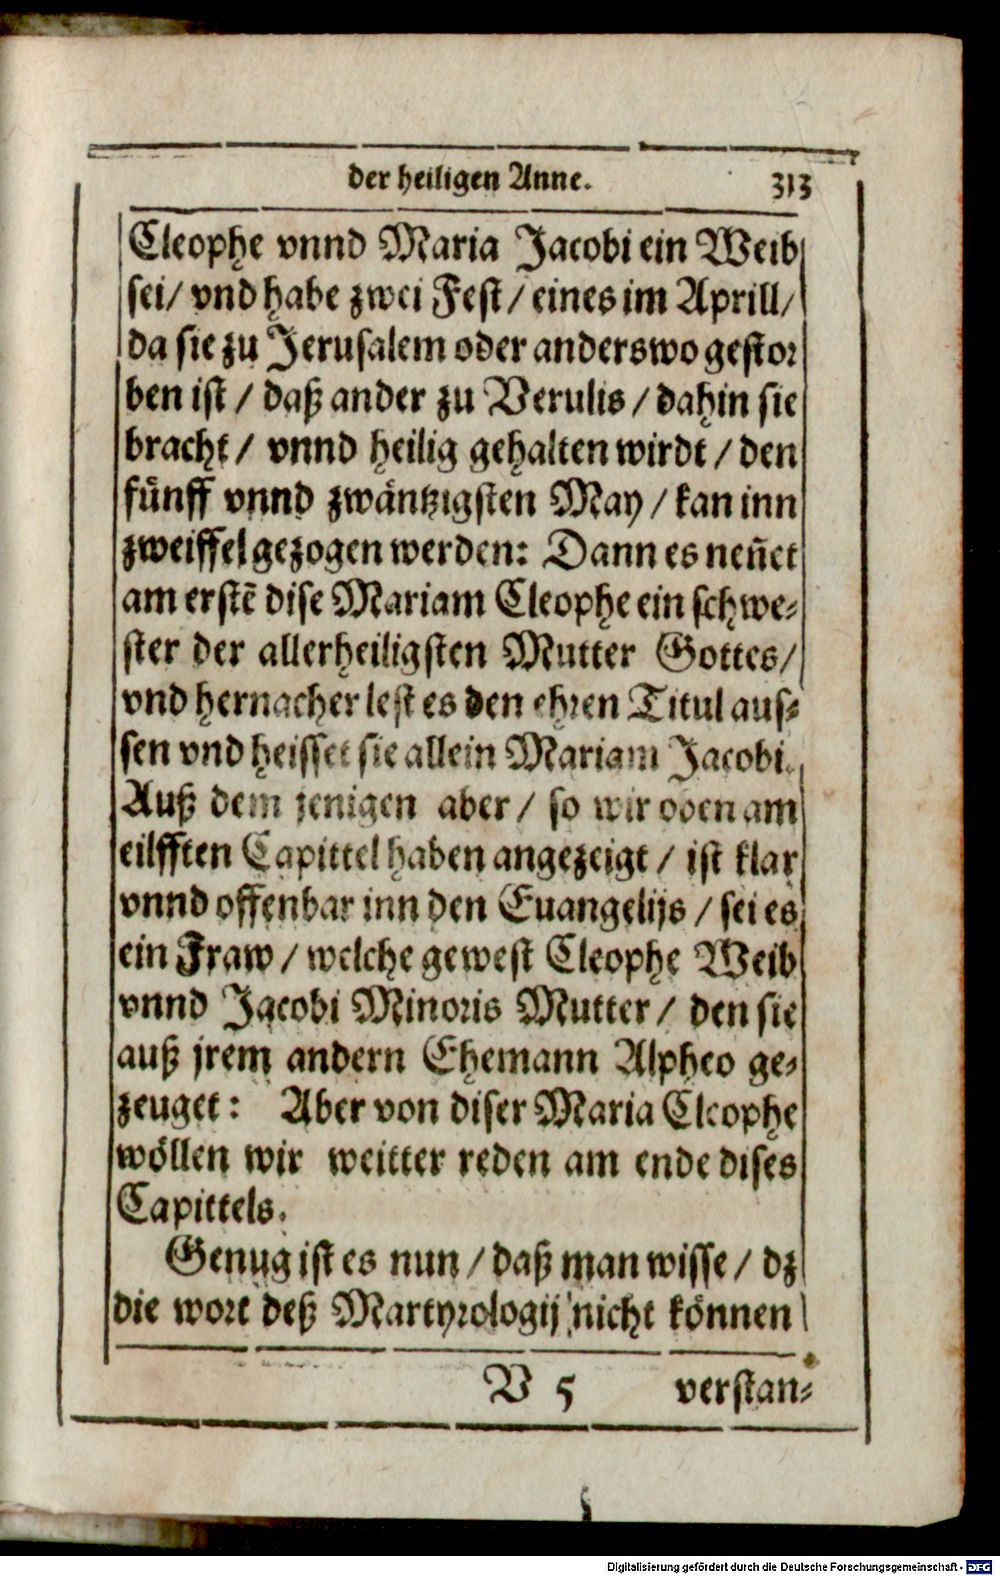 der heiligen Anne. 313
Cleophe vnnd Maria Jacobi ein Weib
sei/ vnd habe zwei Fest/ eines im Aprill/
da sie zu Jerusalem oder anderswo gestor
ben ist/ daß ander zu Verulis/ dahin sie
bracht/ vnnd heilig gehalten wirdt/ den
fünff vnnd zwäntzigsten May/ kan inn
zweiffel gezogen werden: Dann es neñet
am erstẽ dise Mariam Cleophe ein schwe-
ster der allerheiligsten Mutter Gottes/
vnd hernacher lest es den ehren Titul aus-
sen vnd heisset sie allein Mariam Jacobi.
Auß dem jenigen aber/ so wir oben am
eilfften Capittel haben angezeigt/ ist klar
vnnd offenbar inn den Euangelijs/ sei es
ein Fraw/ welche gewest Cleophe Weib
vnnd Jacobi Minoris Mutter/ den sie
auß jrem andern Ehemann Alpheo ge-
zeuget: Aber von diser Maria Cleophe
wöllen wir weitter reden am ende dises
Capittels.
Genug ist es nun/ daß man wisse/ dz
die wort deß Martyrologij nicht können
V 5 verstan-
Digitalisierung gefördert durch die Deutsche Forschungsgemeinschaft - DFG